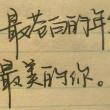 最苍白的年
最美的你。